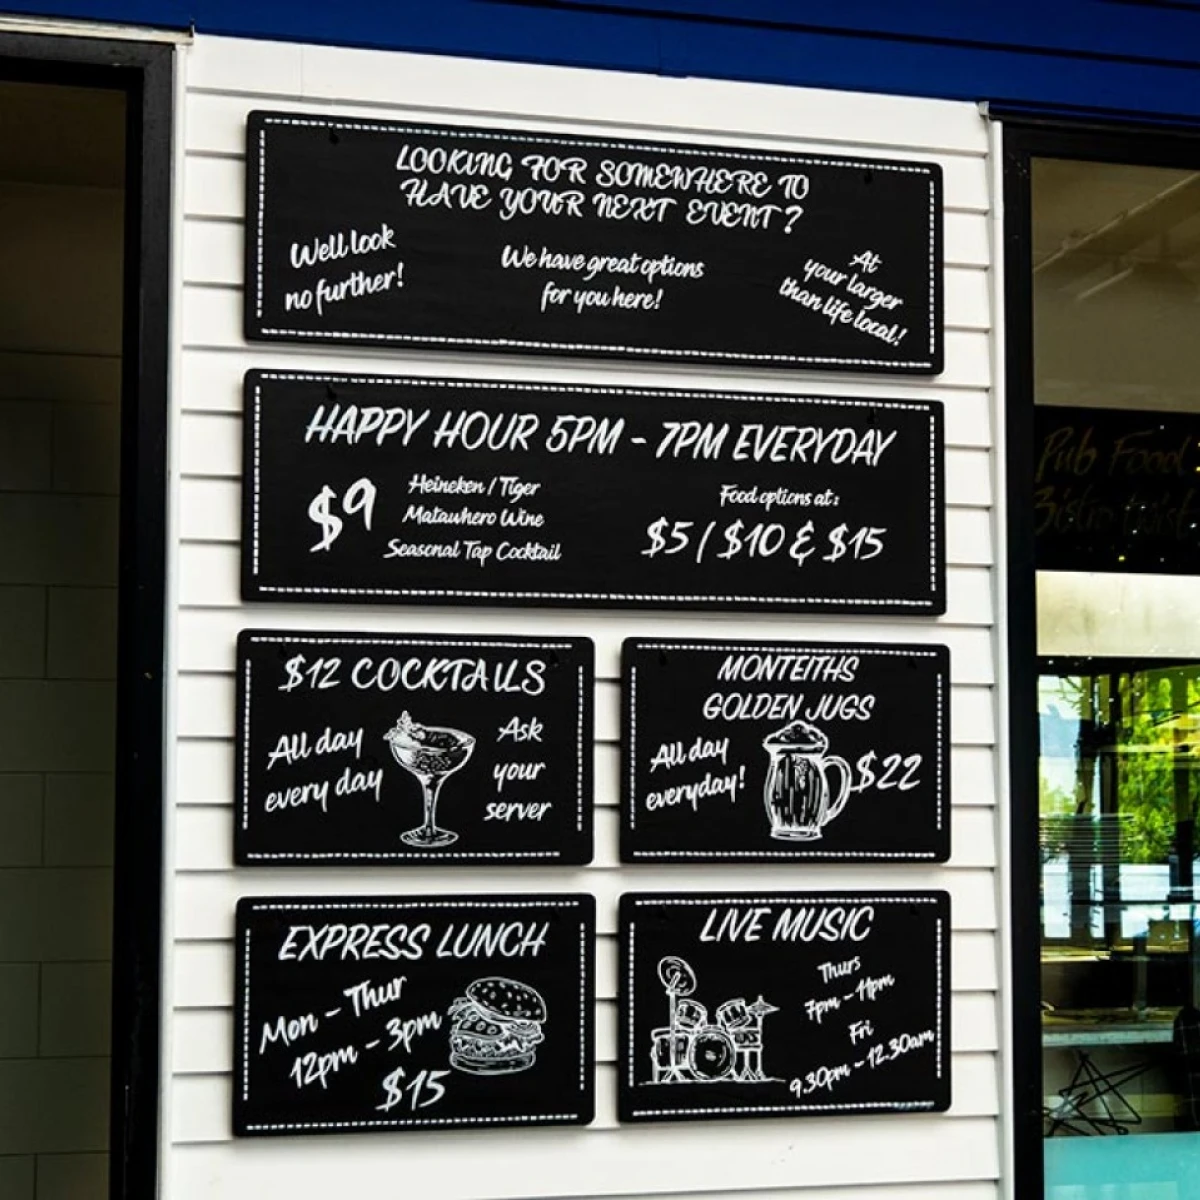 LOOKING FOR SOMEWHERE TO
HAVE YOUR NEXT EVENT?
Well look
no further!
We have great options
for you here!
At
your larger
than life local!
HAPPY HOUR 5PM - 7PM EVERYDAY
$9
Heineken / Tiger
Matawhero Wine
Seasonal Tap Cocktail
Food options at:
$5 / $10 & $15
$12 COCKTAILS
All day
every day
Ask
your
server
MONTEITHS
GOLDEN JUGS
All day
everyday!
$22
EXPRESS LUNCH
Mon - Thur
12pm - 3pm
$15
LIVE MUSIC
Thurs
7pm - 11pm
Fri
9.30pm - 12.30am
Pub Food